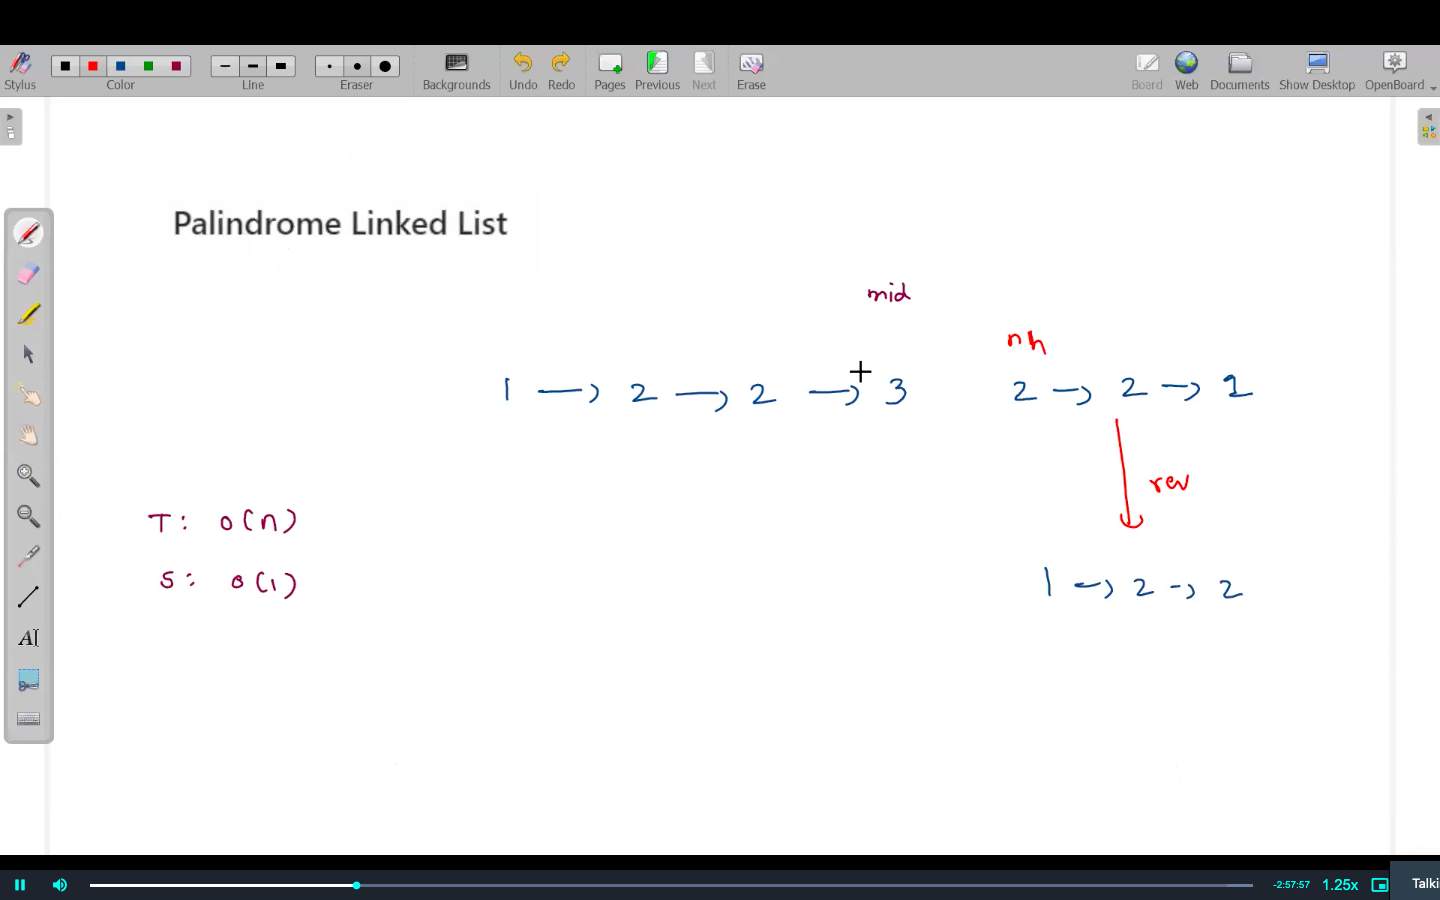 Stylus
Color
Line
Eraser
Backgrounds
Undo
Redo
Pages
Previous
Next
Erase
Board
Web
Documents
Show Desktop
OpenBoard
Palindrome Linked List
mid
nh
1 → 2 → 2 → 3 2 → 2 → 1
rev
T: O(n)
S: O(1)
1 → 2 → 2
AI
-2:57:57
1.25x
Talki